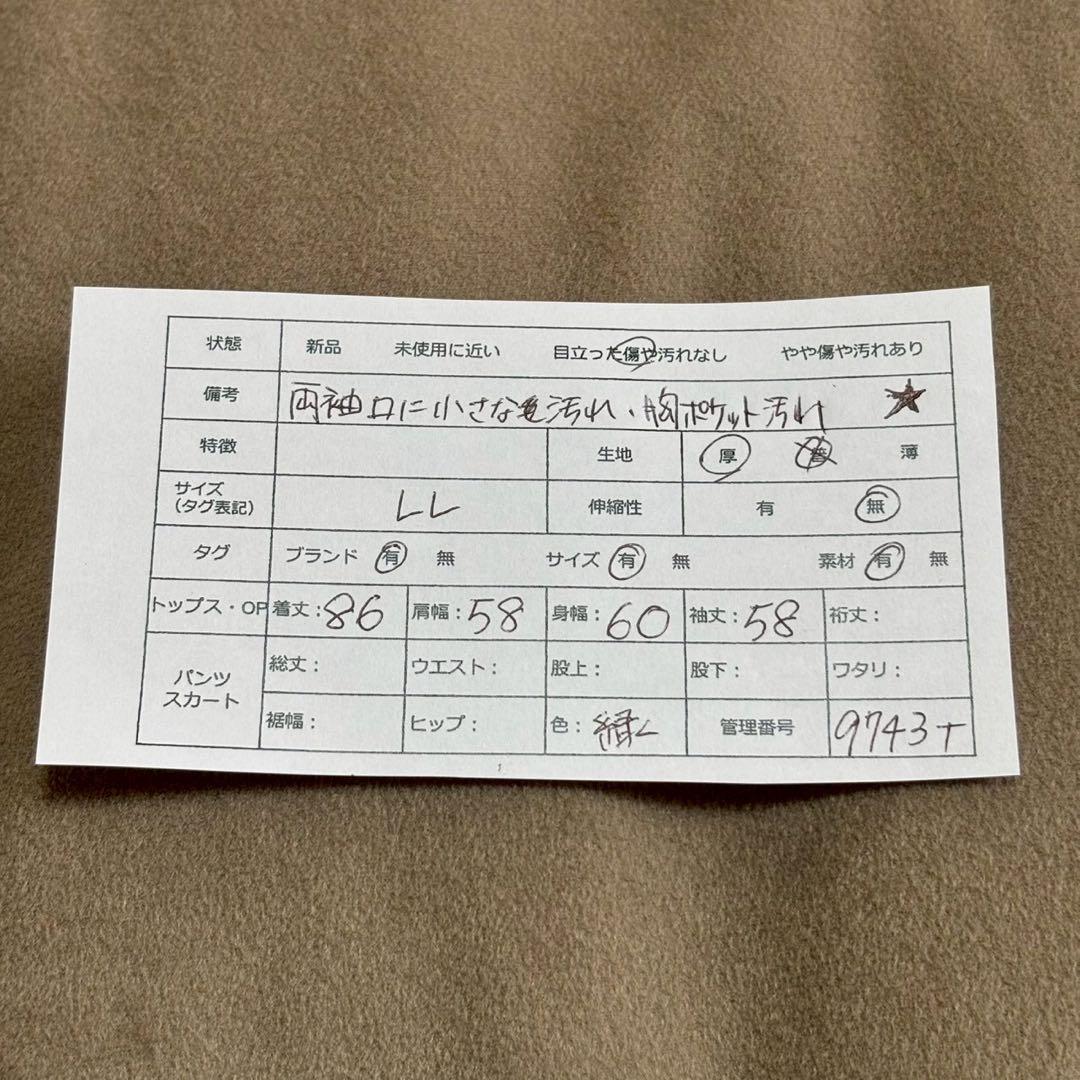 状態 新品 未使用に近い 目立った傷や汚れなし やや傷や汚れあり
備考 両袖口に小さな 汚れ・胸ポケット汚れ ★
特徴 生地 厚 普 薄
サイズ
(タグ表記) LL 伸縮性 有 無
タグ ブランド 有 無 サイズ 有 無 素材 有 無
トップス・OP 着丈:86 肩幅:58 身幅:60 袖丈:58 裄丈:
パンツ
スカート
総丈: ウエスト: 股上: 股下: ワタリ:
裾幅: ヒップ: 色: 緑 管理番号 9743+